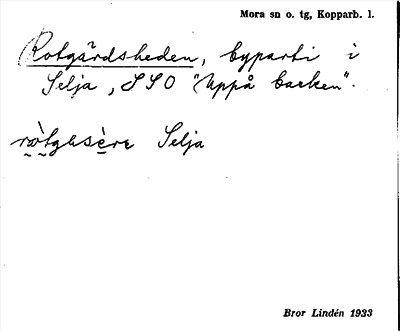 Mora sn o. tg, Kopparb. l.
Rotgårdsheden, byparti i
Selja, SSO "Uppå backen".
Selja
Bror Lindén 1933